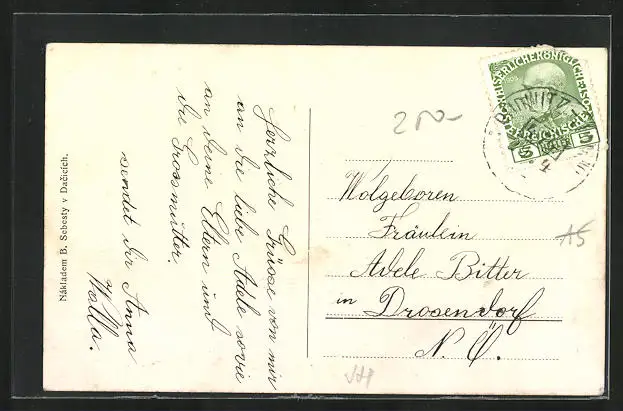 Nákladem B. Sebesty v Dačicích.
Herzliche Grüsse von mir
an die liebe Adele sowie
an deine Eltern und
die Grossmutter.
sendet dir Anna
Walla.
200-
KAISERLICHE KÖNIGLICHE
1908
ÖSTERREICHISCHE
5 5
Wolgeboren
Fräulein
Adele Bitter
in Drosendorf
N. Ö.
AS